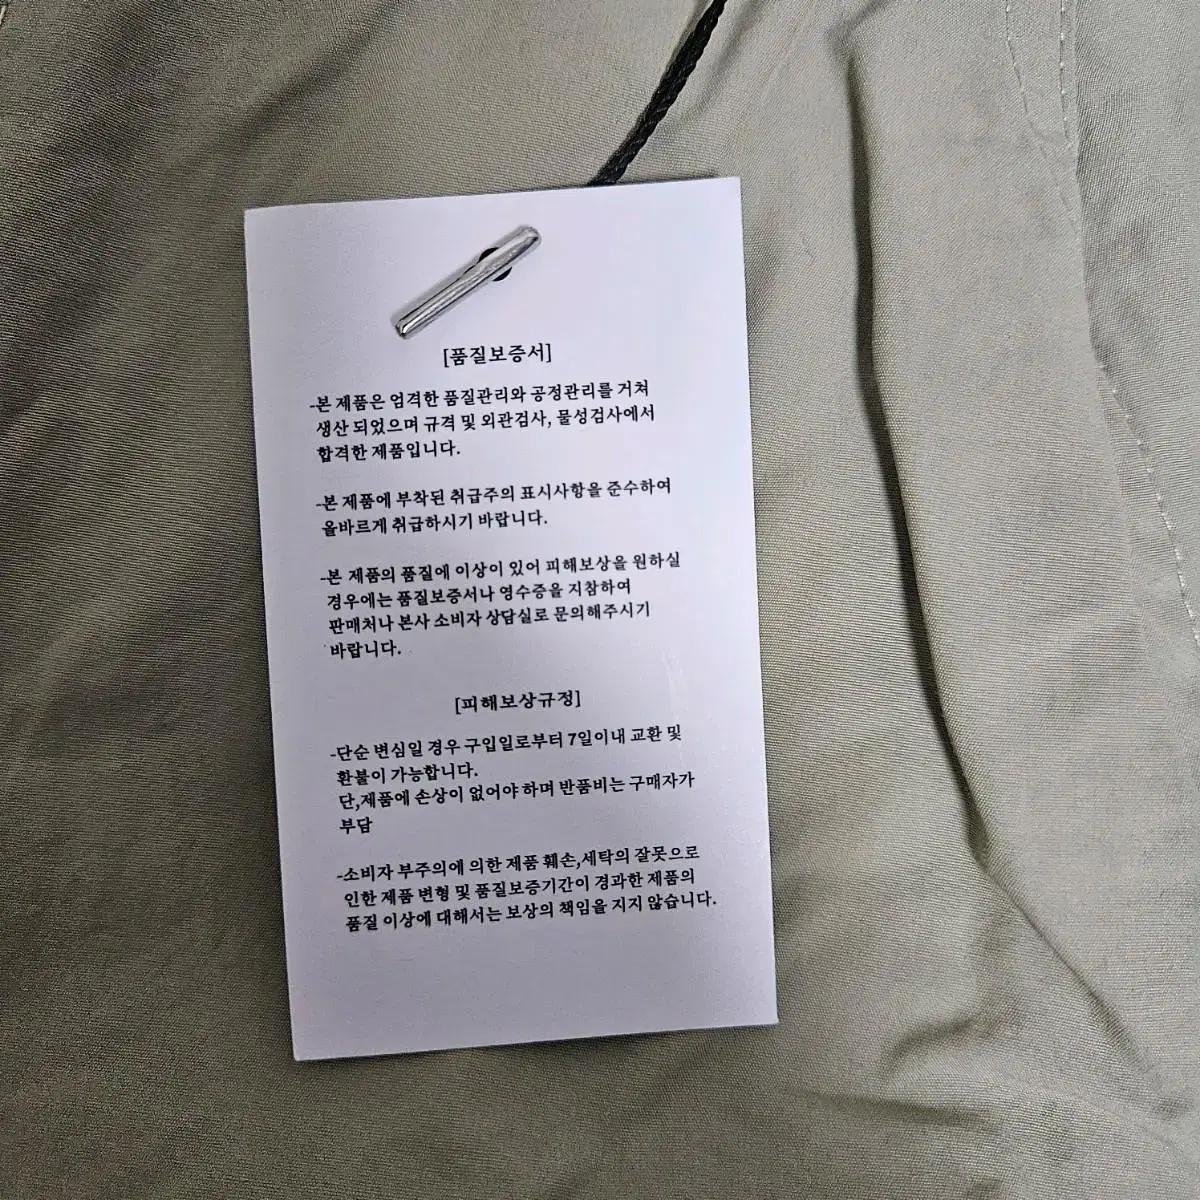 [품질보증서]
-본 제품은 엄격한 품질관리와 공정관리를 거쳐
생산 되었으며 규격 및 외관검사, 물성검사에서
합격한 제품입니다.
-본 제품에 부착된 취급주의 표시사항을 준수하여
올바르게 취급하시기 바랍니다.
-본 제품의 품질에 이상이 있어 피해보상을 원하실
경우에는 품질보증서나 영수증을 지참하여
판매처나 본사 소비자 상담실로 문의해주시기
바랍니다.
[피해보상규정]
-단순 변심일 경우 구입일로부터 7일이내 교환 및
환불이 가능합니다.
단,제품에 손상이 없어야 하며 반품비는 구매자가
부담
-소비자 부주의에 의한 제품 훼손,세탁의 잘못으로
인한 제품 변형 및 품질보증기간이 경과한 제품의
품질 이상에 대해서는 보상의 책임을 지지 않습니다.